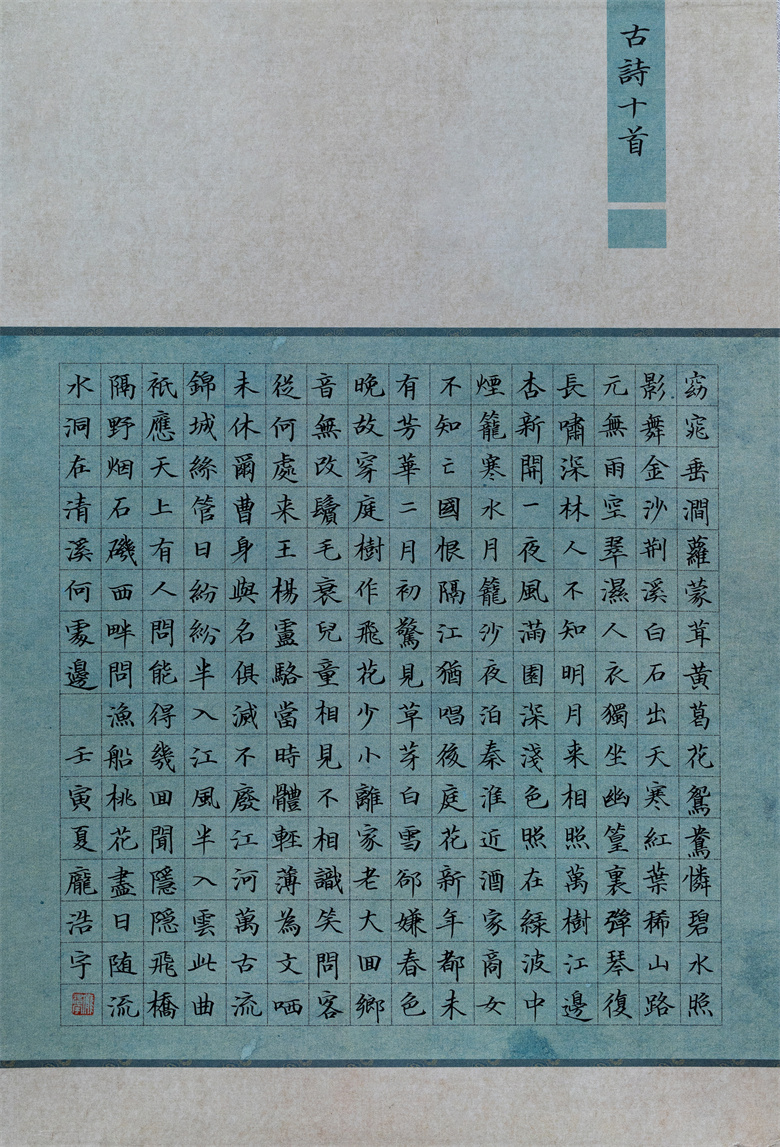 古詩十首
窈窕垂澗蘿蒙茸黃葛花鴛鴦憐碧水照
影舞金沙荆溪白石出天寒紅葉稀山路
元無雨空翠濕人衣獨坐幽篁裏彈琴復
長嘯深林人不知明月来相照萬樹江邊
杏新開一夜風滿園深淺色照在綠波中
煙籠寒水月籠沙夜泊秦淮近酒家商女
不知亡國恨隔江猶唱後庭花新年都未
有芳華二月初驚見草芽白雪郤嫌春色
晚故穿庭樹作飛花少小離家老大回鄉
音無改鬢毛衰兒童相見不相識笑問客
從何處来王楊盧駱當時體輕薄為文哂
未休爾曹身與名俱滅不廢江河萬古流
錦城絲管日紛紛半入江風半入雲此曲
祇應天上有人問能得幾回聞隱隱飛橋
隔野烟石磯西畔問漁船桃花盡日随流
水洞在清溪何處邊 壬寅夏龐浩宇